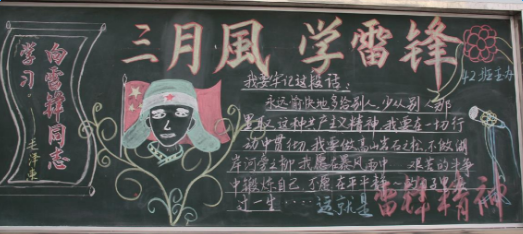 向雷锋同志
学习
毛泽東
三月風 学雷锋
42班主办
我要牢记这段话:
永远愉快地多给别人,少从别人那
里取,这种共产主义精神,我要在一切行
动中贯彻,我要做高山岩石之松,不做湖
岸河旁之柳,我愿在暴风雨中 艰苦的斗争
中锻炼自己,不愿在平平静
过一生····这就是
雷锋精神